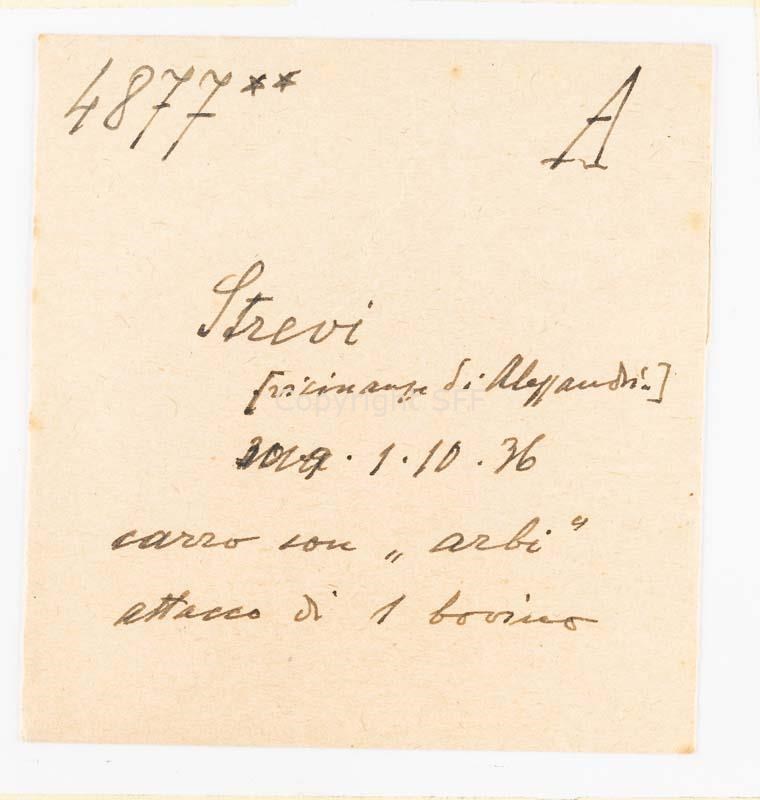 4877** A
Strevi
[vicinanze di Alessandria]
Copyright SFF
1.10.36
carro con „arbi“
attacco di 1 bovino